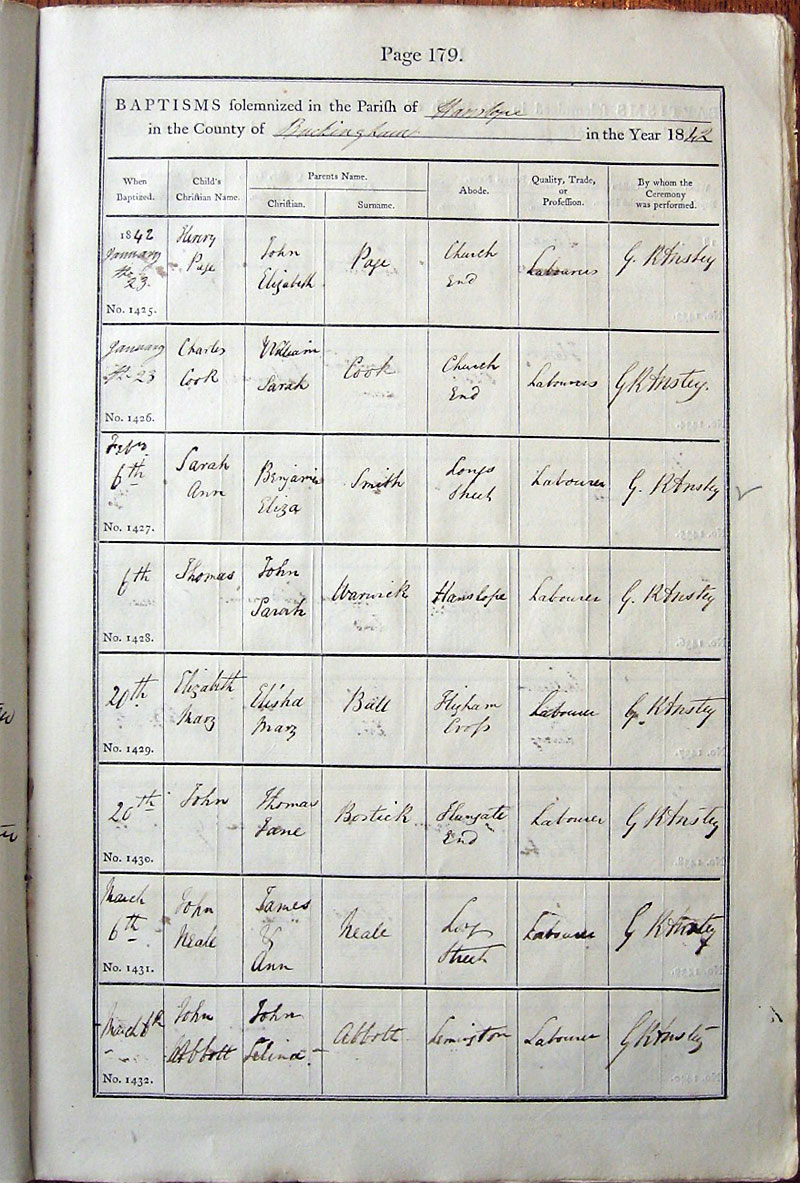 Page 179.
BAPTISMS solemnized in the Parish of Hanslope
in the County of Buckingham in the Year 1842
When Baptized.
Child's Christian Name.
Parents Name.
Christian.
Surname.
Abode.
Quality, Trade, or Profession.
By whom the Ceremony was performed.
1842 January the 23.
No. 1425.
Henry Page
John Elizabeth
Page
Church End
Labourer
G. R Anstey
January the 23
No. 1426.
Charles Cook
William Sarah
Cook
Church End
Labourer
G R Anstey.
6th
No. 1427.
Sarah Ann
Benjamin Eliza
Smith
Long Street
Labourer
G. R Anstey
6th
No. 1428.
Thomas
John Sarah
Warwick
Hanslope
Labourer
G. R Anstey
20th
No. 1429.
Elizabeth Mary
Elisha Mary
Ball
Higham Cross
Labourer
G. R Anstey
20th
No. 1430.
John
Thomas Jane
Bostick
End
Labourer
G R Anstey
March 6th
No. 1431.
John Neale
James & Ann
Neale
Long Street
Labourer
G R Anstey
March 6th
No. 1432.
John Abbott
John Selina
Abbott
Labourer
G R Anstey